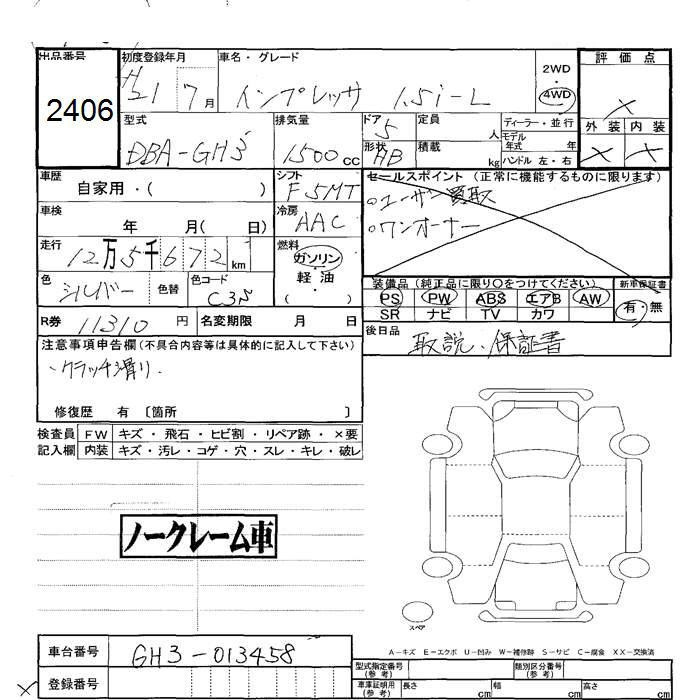 出品番号 初度登録年月 車名・グレード 2WD 評価点
2406 H21 7月 インプレッサ 1.5i-L 4WD ×
型式 排気量 ドア 5 定員 人 ディーラー・並行 外装 内装
DBA-GH3 1500cc 形状 HB 積載 kg モデル年式 年 × ×
ハンドル 左・右
車歴 自家用・( ) シフト F5MT セールスポイント (正常に機能するものに限ります)
車検 年 月( 日) 冷房 AAC ○ユーザー買取
○ワンオーナー
走行 12万5千672km 燃料 ガソリン
軽・油
( )
色 シルバー 色替 色コード 装備品 (純正品に限り○をつけてください) 新車保証書
PS PW ABS エアB AW 有・無
SR ナビ TV カワ
R券 11310円 名変期限 月 日 後日品 取説、保証書
注意事項申告欄(不具合内容等は具体的に記入して下さい)
・クラッチ滑り.
修復歴 有 〔箇所 〕
検査員 FW キズ・飛石・ヒビ割・リペア跡・×要
記入欄 内装 キズ・汚レ・コゲ・穴・スレ・キレ・破レ
ノークレーム車
スペア
A-キズ E-エクボ U-凹み W-補修跡 S-サビ C-腐食 XX-交換済
車台番号 GH3-013458 型式指定番号(参考) 類別区分番号(参考)
× 登録番号 車庫証明用(参考) 長さ cm 幅 cm 高さ cm